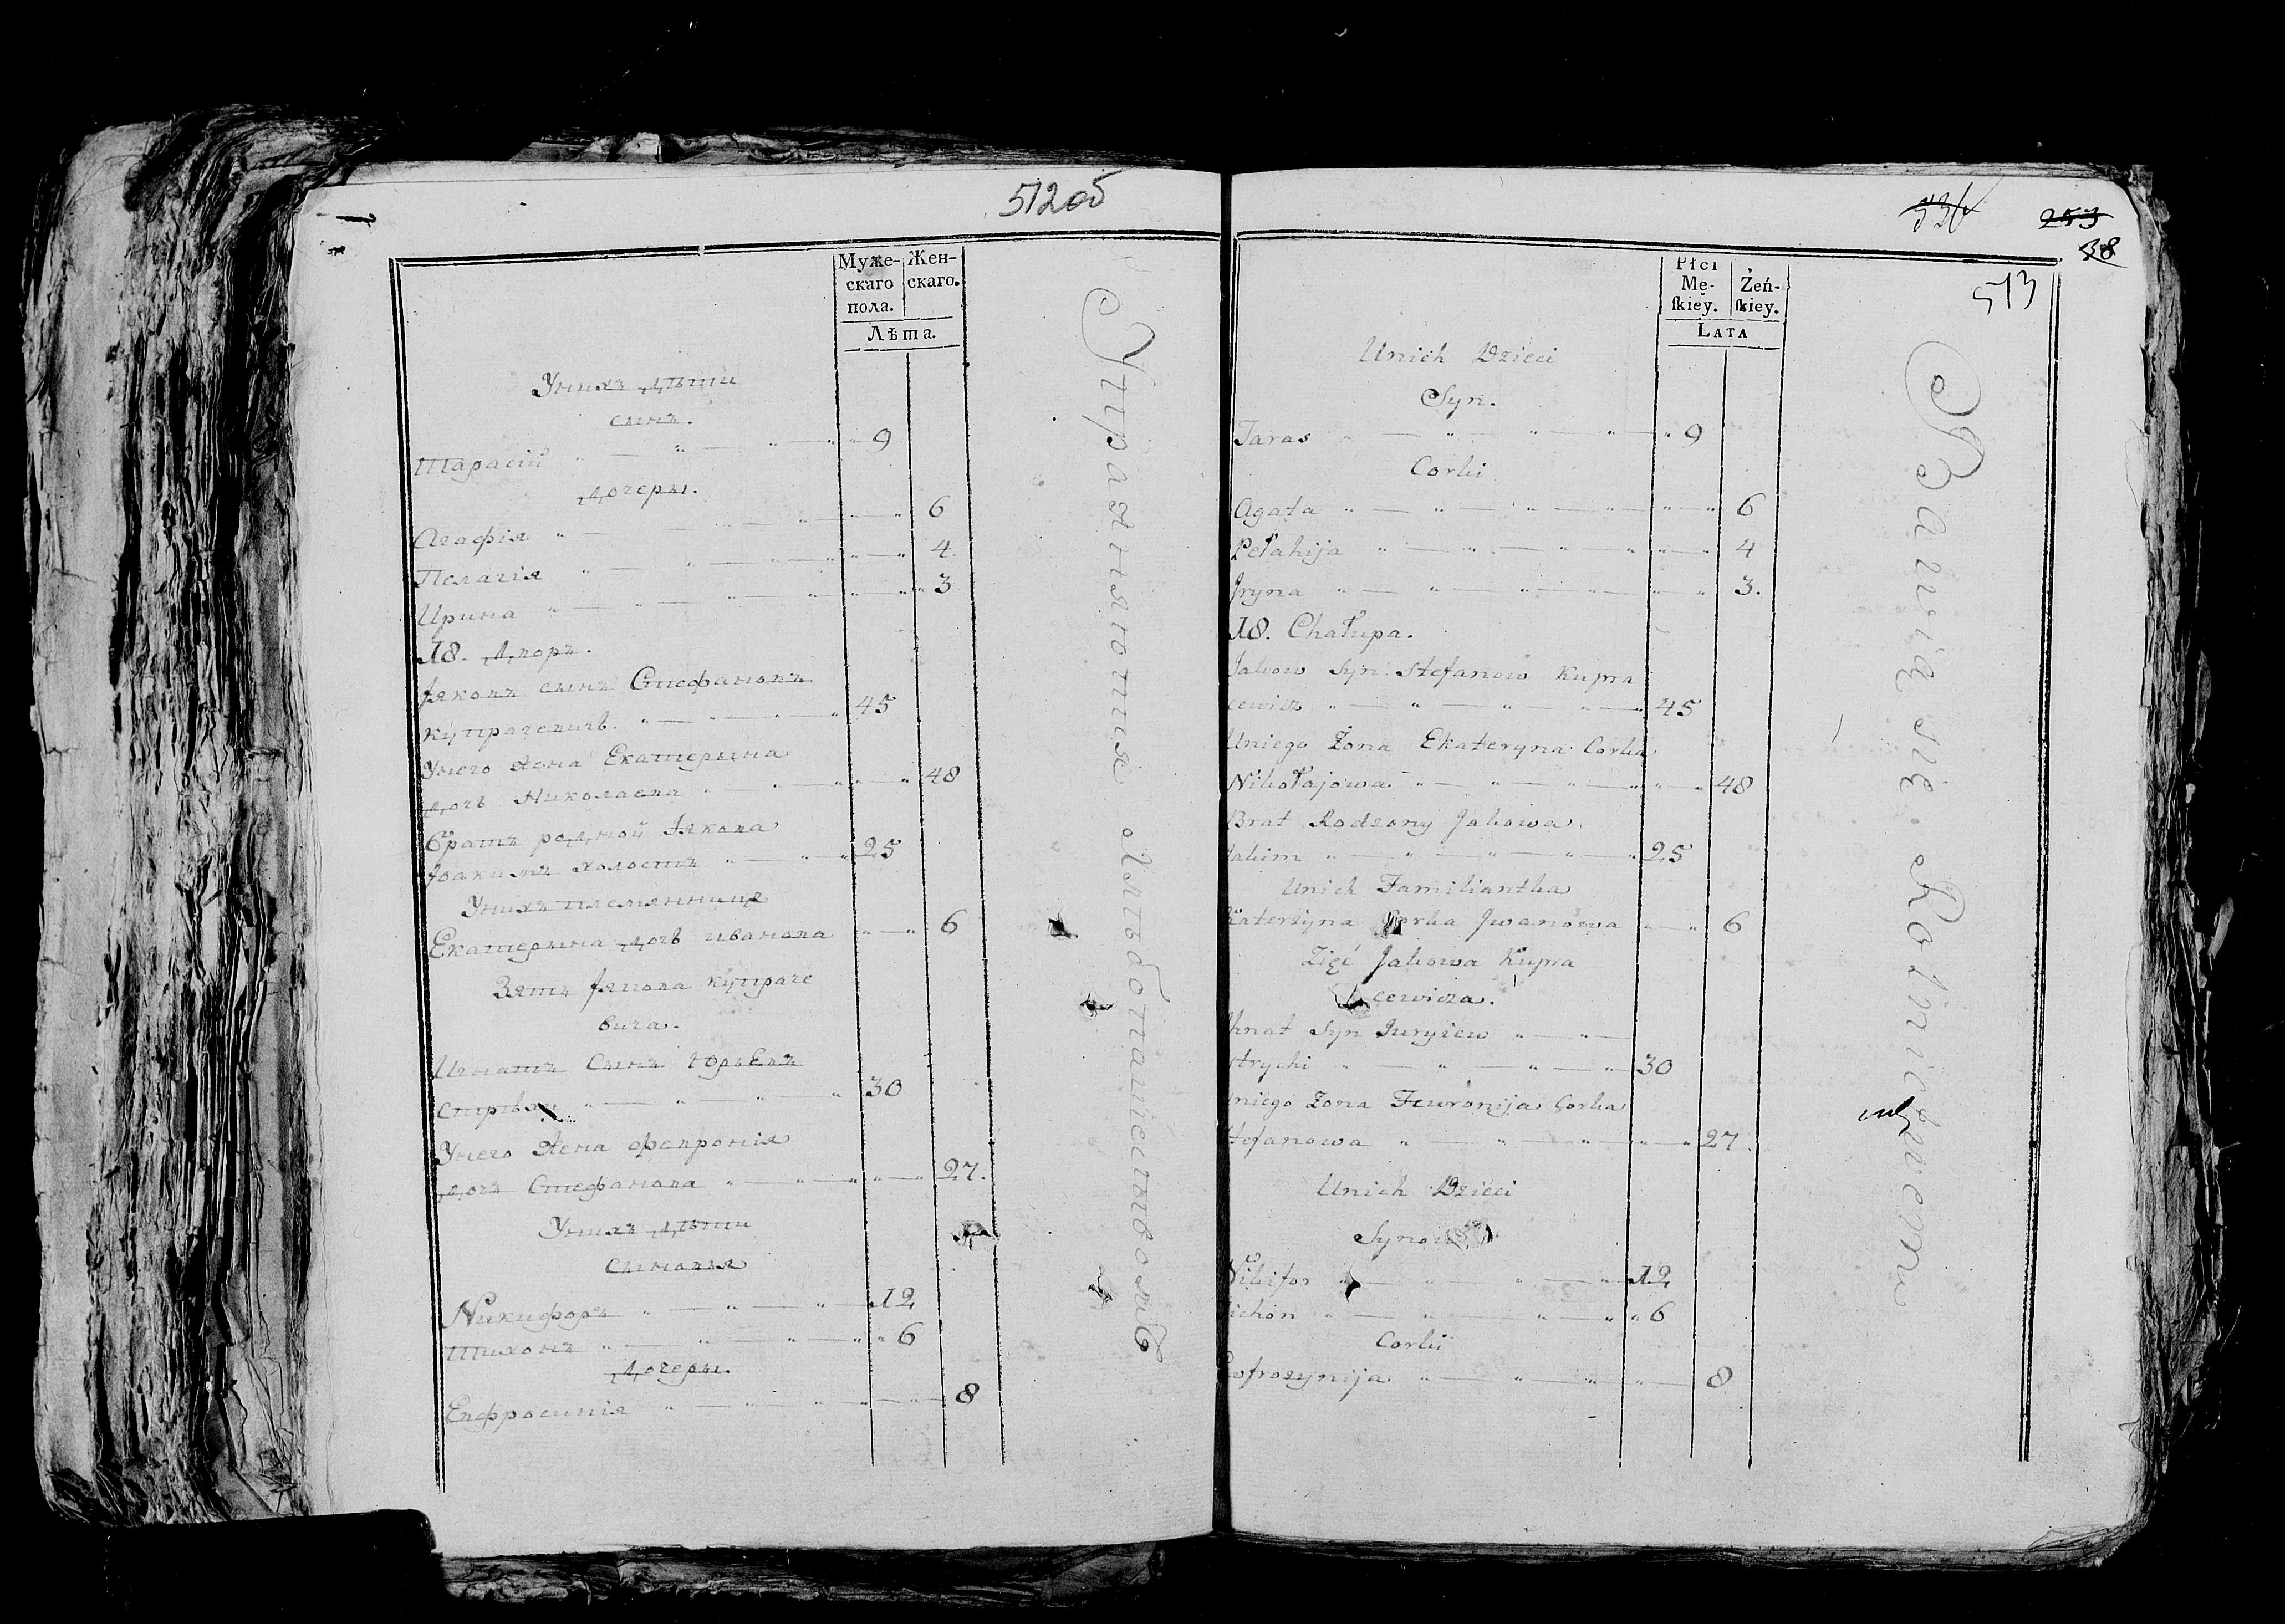 512об
Муже-
скаго
пола.
Жен-
скаго.
Лѣта.
Унихъ дѣти
сынъ.
Тарасій 9
дочеры.
Агафія 6
Пелагія 4
Ирина 3
18. Дворъ.
Іяковъ сынъ Стефановъ
Купрачевичъ. 45
Унего жена Екатерына
дочь Николаева 48
Братъ родной Іякова
Іоакимъ холостъ 25
Унихъ племянница
Екатерына дочь иванова 6
Зять Іякова Купраче
вича.
Игнатъ Сынъ Юрьевъ
30
Унего жена Февронія
дочь Стефанова 27.
Унихъ дѣти
Сыновья
Никифоръ 12
Тихонъ 6
дочеры.
Евфросинія 8
Упражняются хлѣбопашествомъ
536
253
38
513
Płci
Mę-
ſkiey.
Żeń-
ſkiey.
LATA
Unich Dzieci
Syn.
Taras 9
Corki
Agata 6
Pełahija 4
Jryna 3.
18. Chałupa.
Jakow Syn Stefanow Kupra
cewicz 45
Uniego Żona Ekateryna Corka
Nikołajowa 48
Brat Rodzony Jakowa
Jakim 25
Unich Familiantka
Katerzyna Corka Jwanowa 6
Zięć Jakowa Kupra
cewicza.
Ihnat Syn Juryiew
strychi 30
Uniego Żona Fewronija Corka
Stefanowa 27.
Unich Dzieci
Synow
Nikifor 12
Tichon 6
Corki
Eofrozynija 8
Bawią się Rolnictwem